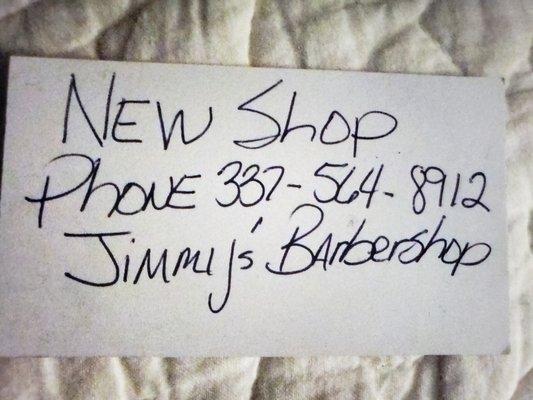 New Shop
Phone 337-564-8912
Jimmy's Barbershop